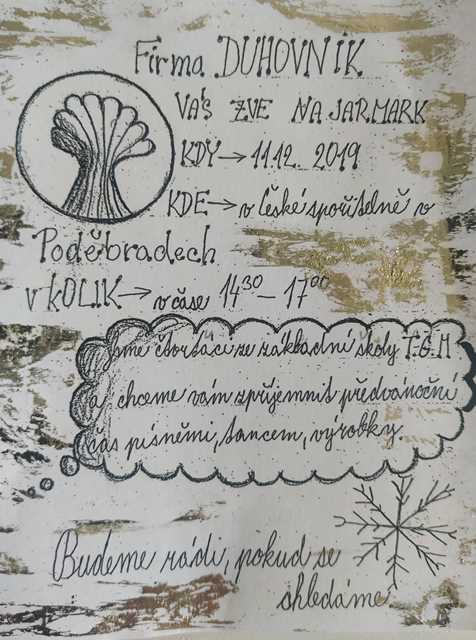 Firma DUHOVNÍK
VÁS ZVE NA JARMARK
KDY → 11.12. 2019
KDE → v České spořitelně v
Poděbradech
V KOLIK → v čase 14³⁰ – 17⁰⁰
Jsme čtvrťáci ze základní školy T.G.M
a chceme vám zpříjemnit předvánoční
čas písněmi, tancem, výrobky.
Budeme rádi, pokud se
shledáme